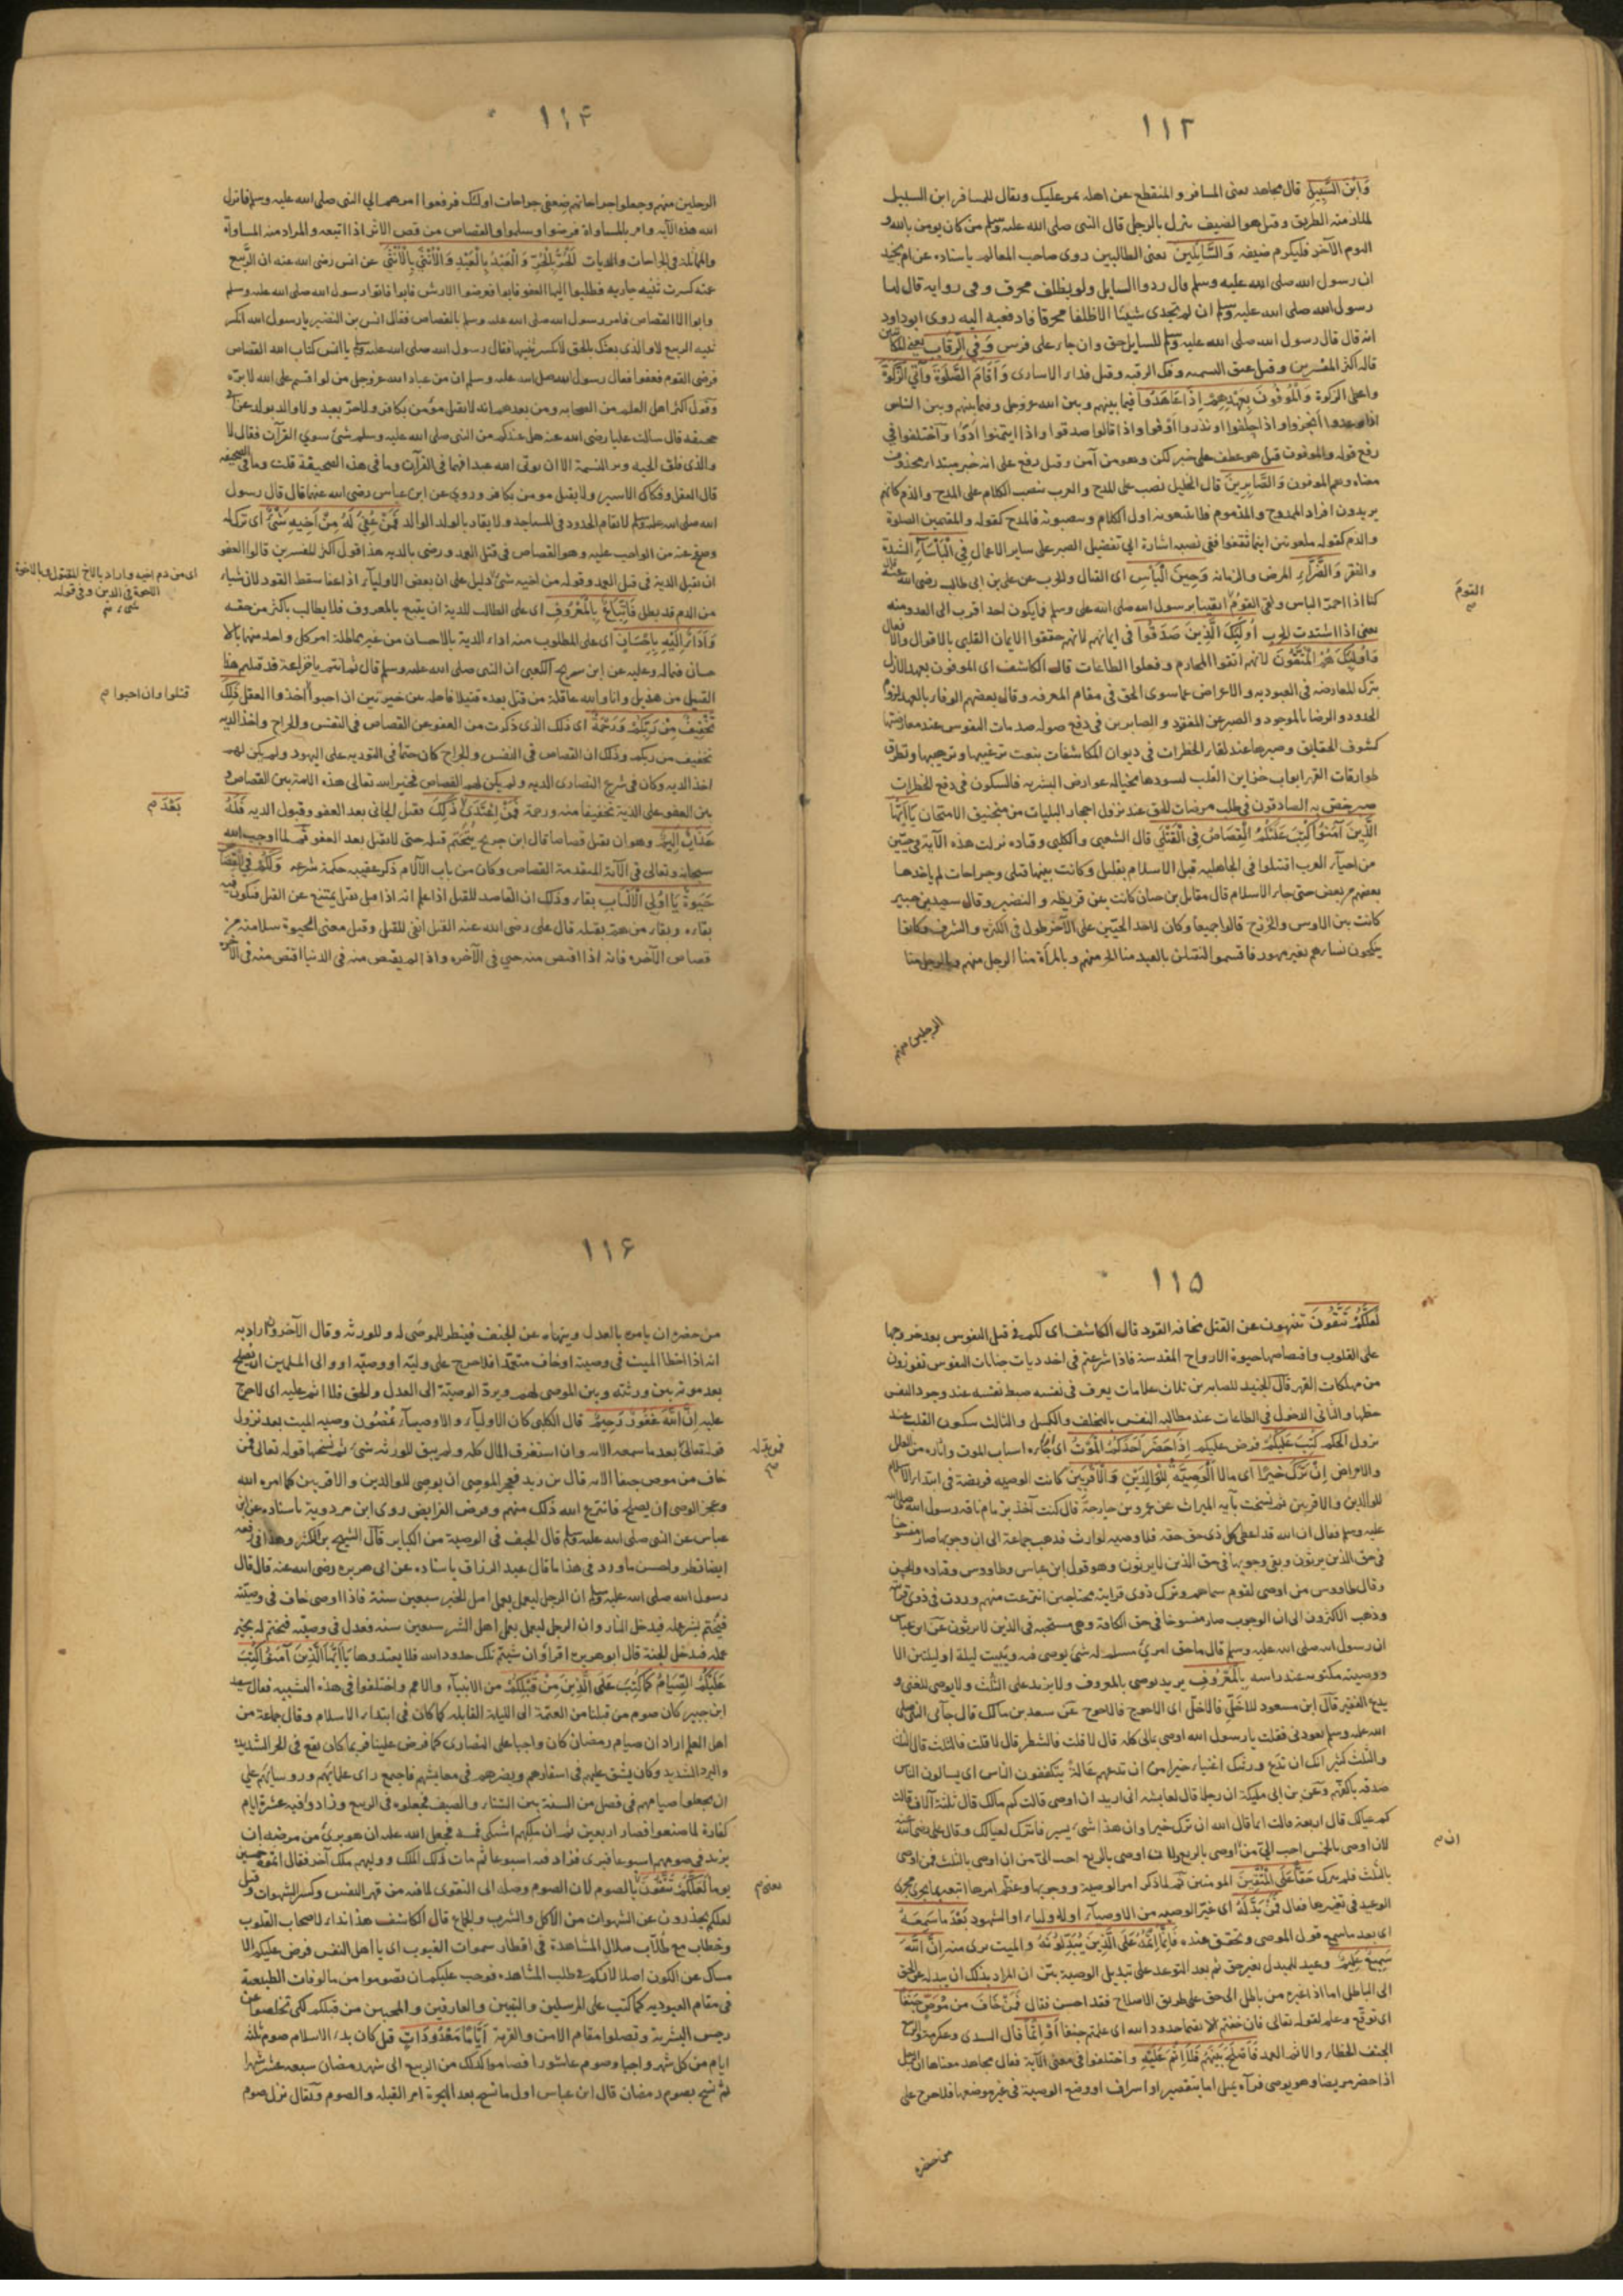 ١١٣
وَابْنَ السَّبِيلِ قال مجاهد يعنى المسافر والمنقطع عن اهله يمر عليك ويقال للمسافر ابن السبيل
لملازمته الطريق وقيل هو الضيف ينزل بالرجل قال النبى صلى الله عليه وسلم من كان يومن بالله و
اليوم الآخر فليكرم ضيفه وَالسَّائِلِينَ يعنى الطالبين روى صاحب المعالم باسناده عن ام بجيد
ان رسول الله صلى الله عليه وسلم قال ردوا السايل ولو بظلف محرق وفى رواية قال لها
رسول الله صلى الله عليه وسلم ان لم تجدى شيئا الا ظلفا محرقا فادفعيه اليه روى ابوداود
انه قال قال رسول الله صلى الله عليه وسلم للسايل حق وان جاء على فرس وَفِي الرِّقَابِ يعنى المكاتبين
قاله اكثر المفسرين وقيل عتق النسمه وفك الرقبه وقيل فداء الاسارى وَأَقَامَ الصَّلٰوةَ وَآتَى الزَّكٰوةَ
واعطى الزكوة وَالْمُوفُونَ بِعَهْدِهِمْ إِذَا عَاهَدُوا فيما بينهم وبين الله عزوجل وفيما بينهم وبين الناس
اذا وعدوا أنجزوا واذا حلفوا او نذروا اوفوا واذا قالوا صدقوا واذا ايتمنوا ادّوا واختلفوا في
رفع قوله والموفون قيل هو عطف على خبر لكن وهو من آمن وقيل رفع على انه خبر مبتداء محذوف
معناه وهم الموفون وَالصَّابِرِينَ قال الخليل نصب على المدح والعرب تنصب الكلام على المدح والذم كانهم
يريدون افراد الممدوح والمذموم فلا يتبعونه اول الكلام وينصبونه فالمدح كقوله والمقيمين الصلوة
والذم كقوله ملعونين اينما ثقفوا ففى نصبه اشارة الى تفضيل الصبر على ساير الاعمال فِي الْبَأْسَاءِ الشدة
والفقر وَالضَّرَّاءِ المرض والزمانه وَحِينَ الْبَأْسِ اى القتال والحرب عن على بن ابى طالب رضى الله عنه قال
كنا اذا احمرّ الباس ولقى القومُ اتقينا برسول الله صلى الله عليه وسلم فما يكون احد اقرب الى العدو منه
القومَ م
يعنى اذا اشتدت الحرب أُولٰئِكَ الَّذِينَ صَدَقُوا فى ايمانهم لانهم حققوا الايمان القلبى بالاقوال والافعال
وَأُولٰئِكَ هُمُ الْمُتَّقُونَ لانهم اتقوا المحارم وفعلوا الطاعات قال الكاشف اى الموفون بعهد الازل
بترك المعارضه فى العبوديه والاعراض عما سوى الحق فى مقام المعرفه وقال بعضهم الوفاء بالعهد لزوم
الحدود والرضا بالموجود والصبر عن المفقود والصابرين فى دفع صوله صدمات النفوس عند معارضتها
كشوف الحقايق وصبرها عند لقاء الخطرات فى ديوان المكاشفات بنعت ترغيبها وترهيبها وتطرق
طوارقات القهر ابواب خزاين القلب لسودها بخياله عوارض البشريه فالسكون فى دفع الخطرات
صبر خص به الصادقون فى طلب مرضات الحق عند نزول احجار البليات من منجنيق الامتحان يَا أَيُّهَا
الَّذِينَ آمَنُوا كُتِبَ عَلَيْكُمُ الْقِصَاصُ فِي الْقَتْلَى قال الشعبى والكلبى وقتاده نزلت هذه الآية فى حيّين
من احياء العرب اقتتلوا فى الجاهليه قبل الاسلام بقليل وكانت بينهما قتلى وجراحات لم ياخذها
بعضهم من بعض حتى جاء الاسلام قال مقاتل بن حيان كانت بين قريظه والنضير وقال سعيد بن جبير
كانت بين الاوس والخزرج قالوا جميعا وكان لاحد الحيّين على الآخر طول فى الكثرة والشرف وكانوا
ينكحون نساءهم بغير مهور فاقسموا لنقتلن بالعبد منا الحر منهم وبالمرأة منا الرجل منهم وبالرجل منا
الرجلين منهم
١١٤
الرجلين منهم وجعلوا جراحاتهم ضعفى جراحات اولئك فرفعوا امرهم الى النبى صلى الله عليه وسلم فانزل
الله هذه الآيه وامر بالمساواة فرضوا وسلموا والقصاص من قص الاثر اذا اتبعه والمراد منه المساواة
والمماثلة فى الجراحات والديات اَلْحُرُّ بِالْحُرِّ وَالْعَبْدُ بِالْعَبْدِ وَالْأُنْثَى بِالْأُنْثَى عن انس رضى الله عنه ان الرُّبَيِّع
عمته كسرت ثنيه جاريه فطلبوا اليها العفو فابوا فعرضوا الارش فابوا فاتوا رسول الله صلى الله عليه وسلم
وابوا الا القصاص فامر رسول الله صلى الله عليه وسلم بالقصاص فقال انس بن النضير يا رسول الله اتكسر
ثنيه الربيع لا والذى بعثك بالحق لا تكسر ثنيتها فقال رسول الله صلى الله عليه وسلم يا انس كتاب الله القصاص
فرضى القوم فعفوا فقال رسول الله صلى الله عليه وسلم ان من عباد الله عزوجل من لو اقسم على الله لابرّه
وقول اكثر اهل العلم من الصحابه ومن بعدهم انه لا يقتل مؤمن بكافر ولا حرّ بعبد ولا والد بولد عن ابى
جحيفه قال سالت عليا رضى الله عنه هل عندكم من النبى صلى الله عليه وسلم شئ سوى القرآن فقال لا
والذى فلق الحبه وبرء النسمة الا ان يوتى الله عبدا فهما فى القرآن وما فى هذه الصحيفة قلت وما فى الصحيفه
قال العقل وفكاك الاسير ولا يقتل مومن بكافر وروى عن ابن عباس رضى الله عنهما قال قال رسول
الله صلى الله عليه وسلم لا تقام الحدود فى المساجد ولا يقاد بالولد الوالد فَمَنْ عُفِيَ لَهُ مِنْ أَخِيهِ شَيْءٌ اى ترك له
وصفح عنه من الواجب عليه وهو القصاص فى قتل العمد ورضى بالديه هذا قول اكثر المفسرين قالوا العفو
اى من دم اخيه واراد بالاخ المقتول وبالاخوة
الاخوة فى الدين وفى قوله
شىء م
ان يقبل الدية فى قتل العمد وقوله من اخيه شئ دليل على ان بعض الاولياء اذا عفا سقط القود لان شيئا
من الدم قد بطل فَاتِّبَاعٌ بِالْمَعْرُوفِ اى على الطالب للدية ان يتبع بالمعروف فلا يطالب باكثر من حقه
وَأَدَاءٌ إِلَيْهِ بِإِحْسَانٍ اى على المطلوب منه اداء الدية بالاحسان من غير مماطلة امر كل واحد منهما بالا
حسان فيما له وعليه عن ابن سريج الكعبى ان النبى صلى الله عليه وسلم قال ثم انتم يا خزاعة قد قتلتم هذا
القتيل من هذيل وانا والله عاقله من قتل بعده قتيلا فاهله بين خيرتين ان احبوا اخذوا العقل ذٰلِكَ
قتلوا وان احبوا م
تَخْفِيفٌ مِنْ رَبِّكُمْ وَرَحْمَةٌ اى ذلك الذى ذكرت من العفو عن القصاص فى النفس والجراح واخذ الديه
تخفيف من ربكم وذلك ان القصاص فى النفس والجراح كان حتما فى التوريه على اليهود ولم يكن لهم
اخذ الديه وكان فى شرع النصارى الديه ولم يكن لهم القصاص فخير الله تعالى هذه الامة بين القصاص و
بين العفو على الدية تخفيفا منه ورحمة فَمَنِ اعْتَدَى ذٰلِكَ فقتل الجانى بعد العفو وقبول الديه فَلَهُ
بَعْدَ م
عَذَابٌ أَلِيمٌ وهو ان يقتل قصاصا قال ابن جريج يتحتم قتله حتى لا يقبل بعد العفو ثم لما اوجب الله
سبحانه وتعالى فى الآية المتقدمة القصاص وكان من باب الآلام ذكر عقيبه حكمة شرعه وَلَكُمْ فِي الْقِصَاصِ
حَيٰوةٌ يَا أُولِي الْأَلْبَابِ بقاء وذلك ان القاصد للقتل اذا علم انه اذا قتل يقتل يمتنع عن القتل فيكون فيه
بقاءه وبقاء من همّ بقتله قال على رضى الله عنه القتل انفى للقتل وقيل معنى الحيوة سلامته من
قصاص الآخره فانه اذا اقتص منه حيى فى الآخره واذا لم يقتص منه فى الدنيا اقتص منه فى الآخره
١١٥
لَعَلَّكُمْ تَتَّقُونَ تنتهون عن القتل مخافة القود قال الكاشف اى لكم فى قتل النفوس بعد خروجها
على القلوب واقتصاصها حيوة الارواح المقدسة فاذا شرعتم فى اخذ ديات جنايات النفوس تفوزون
من مهلكات القهر قال الجنيد للصابرين ثلاث علامات يعرف فى نفسه ضبط نفسه عند وجود النفس
حظها والثانى الدخول فى الطاعات عند مطالبه النفس بالتخلف والكسل والثالث سكون القلب عند
نزول الحكم كُتِبَ عَلَيْكُمْ فرض عليكم إِذَا حَضَرَ أَحَدَكُمُ الْمَوْتُ اى جاءه اسباب الموت واثاره من العلل
والامراض إِنْ تَرَكَ خَيْرًا اى مالا الْوَصِيَّةُ لِلْوَالِدَيْنِ وَالْأَقْرَبِينَ كانت الوصيه فريضة فى ابتداء الاسلام
للوالدين والاقربين ثم نسخت بآيه الميراث عن عمرو بن خارجة قال كنت آخذ بزمام ناقه رسول الله صلى الله
عليه وسلم فقال ان الله قد اعطى كل ذى حق حقه فلا وصيه لوارث فذهب جماعة الى ان وجوبها صار منسوخا
فى حق الذين يرثون وبقى وجوبها فى حق الذين لا يرثون وهو قول ابن عباس وطاووس وقتاده والحسن
وقال طاووس من اوصى لقوم سماهم وترك ذوى قرابته محتاجين انتزعت منهم وردت فى ذوى قرابته
وذهب الاكثرون الى ان الوجوب صار منسوخا فى حق الكافة وهى مستحبه فى الذين لا يرثون عن ابن عباس
ان رسول الله صلى الله عليه وسلم قال ما حق امرئ مسلم له شئ يوصى فيه ويبيت ليلة او ليلتين الا
ووصيته مكتوبه عند راسه بِالْمَعْرُوفِ يريد يوصى بالمعروف ولا يزيد على الثلث ولا يوصى للغنى و
يدع الفقير قال ابن مسعود للاخلّ فالاخلّ اى الاحوج فالاحوج عن سعد بن مالك قال جاءنى النبى صلى
الله عليه وسلم يعودنى فقلت يا رسول الله اوصى بمالى كله قال لا قلت فالشطر قال لا قلت فالثلث قال الثلث
والثلث كثير انك ان تدع ورثتك اغنياء خير من ان تدعهم عالة يتكففون الناس اى يسالون الناس
صدقه باكفهم وعن بن ابى مليكة ان رجلا قال لعايشه انى اريد ان اوصى قالت كم مالك قال ثلثة آلاف قالت
كم عيالك قال اربعة قالت انما قال الله ان ترك خيرا وان هذا شئ يسير فاترك لعيالك وقال على رضى الله عنه
لان اوصى بالخمس احب الىّ من اوصى بالربع ولان اوصى بالربع احب الىّ من ان اوصى بالثلث فمن اوصى
ان م
بالثلث فلم يترك حَقًّا عَلَى الْمُتَّقِينَ المومنين ثم لما ذكر امر الوصية ووجوبها وعظم امرها اتبعه بما يجرى مجرى
الوعيد فى تغييرها فقال فَمَنْ بَدَّلَهُ اى غيّر الوصيه من الاوصياء او الاولياء او الشهود بَعْدَ مَا سَمِعَهُ
اى بعد ما سمع قول الموصى وتحقق عنده فَإِنَّمَا إِثْمُهُ عَلَى الَّذِينَ يُبَدِّلُونَهُ والميت برى منه إِنَّ اللَّهَ
سَمِيعٌ عَلِيمٌ وعيد للمبدل بغير حق ثم بعد التوعد على تبديل الوصية بيّن ان المراد بذلك ان يبدله عن الحق
الى الباطل اما اذا غيره من باطل الى حق على طريق الاصلاح فقد احسن فقال فَمَنْ خَافَ مِنْ مُوصٍ جَنَفًا
اى توقع وعلم لقوله تعالى فان خفتم الا يقيما حدود الله اى علمتم جنفا أَوْ إِثْمًا قال السدى وعكرمة والربيع
الجنف الخطاء والاثم العمد فَأَصْلَحَ بَيْنَهُمْ فَلَا إِثْمَ عَلَيْهِ واختلفوا فى معنى الآية فقال مجاهد معناها ان الرجل
اذا حضر مريضا وهو يوصى فرآه يميل اما بتقصير او اسراف او وضع الوصية فى غير موضعها فلا حرج على
من حضره
١١٦
من حضره ان يامره بالعدل وينهاه عن الجنف فينظر للموصَى له وللورثه وقال الآخرون اراد به
انه اذا اخطا الميت فى وصيته او خاف متعمدا فلا حرج على وليّه او وصيّه او والى المسلمين ان يصلح
بعد موته بين ورثته وبين الموصى لهم ويردّ الوصية الى العدل والحق فلا اثم عليه اى لا حرج
عليه إِنَّ اللَّهَ غَفُورٌ رَحِيمٌ قال الكلبى كان الاولياء والاوصياء يمضون وصيه الميت بعد نزول
قوله تعالى بعد ما سمعه الايه وان استغرق المال كله ولم يبق للورثه شئ ثم نسخها قوله تعالى فمن
فمن بدّله م
خاف من موص جنفا الايه قال بن زيد فعجز الموصى ان يوصى للوالدين والاقربين كما امره الله
وعجز الوصى ان يصلح فانتزع الله ذلك منهم وفرض الفرايض روى ابن مردوية باسناده عن ابن
عباس عن النبى صلى الله عليه وسلم قال الجنف فى الوصية من الكباير قال الشيخ بن الكثير وهذا فى رفعه
ايضا نظر واحسن ما ورد فى هذا ما قال عبد الرزاق باسناده عن ابى هريره رضى الله عنه قال قال
رسول الله صلى الله عليه وسلم ان الرجل ليعمل بعمل اهل الخير سبعين سنة فاذا اوصى خاف فى وصيّته
فيختم بشر عمله فيدخل النار وان الرجل ليعمل بعمل اهل الشر سبعين سنه فعدل فى وصيته فيختم له بخير
عمله فيدخل الجنة قال ابو هريره اقرأوا ان شيتم تلك حدود الله فلا تعتدوها يَا أَيُّهَا الَّذِينَ آمَنُوا كُتِبَ
عَلَيْكُمُ الصِّيَامُ كَمَا كُتِبَ عَلَى الَّذِينَ مِنْ قَبْلِكُمْ من الانبياء والامم واختلفوا فى هذه التشبيه فقال سعيد
ابن جبير كان صوم من قبلنا من العتمة الى الليلة القابله كما كان فى ابتداء الاسلام وقال جماعة من
اهل العلم اراد ان صيام رمضان كان واجبا على النصارى كما فرض علينا فربما كان يقع فى الحر الشديد
والبرد الشديد وكان يشق عليهم فى اسفارهم ويضرهم فى معايشهم فاجتمع راى علمايهم وروسايهم على
ان يجعلوا صيامهم فى فصل من السنة بين الشتاء والصيف فجعلوه فى الربيع وزادوا فيه عشرة ايام
كفارة لما صنعوا فصار اربعين ثم ان ملكهم اشتكى فمه فجعل الله عليه ان هو برئ من مرضه ان
يزيد فى صومهم اسبوعا فبرى فزاد فيه اسبوعا ثم مات ذلك الملك ووليهم ملك آخر فقال اتموه خمسين
يوما لَعَلَّكُمْ تَتَّقُونَ بالصوم لان الصوم وصله الى التقوى لما فيه من قهر النفس وكسر الشهوات وقيل
يعنى م
لعلكم تحذرون عن الشهوات من الاكل والشرب والجماع قال الكاشف هذا نداء لاصحاب القلوب
وخطاب مع طلّاب هلال المشاهدة فى اقطار سموات الغيوب اى يا اهل النفس فرض عليكم الا
مساك عن الكون اصلا لانكم فى طلب المشاهده فوجب عليكم ان تصوموا من مالوفات الطبيعة
فى مقام العبوديه كما كتب على المرسلين والنبيين والعارفين والمحبين من قبلكم لكى تخلصوا عن
رجس البشرية وتصلوا مقام الامن والقربة أَيَّامًا مَعْدُودَاتٍ قيل كان بدء الاسلام صوم ثلثه
ايام من كل شهر واجبا وصوم عاشورا فصاموا كذلك من الربيع الى شهر رمضان سبعه عشر شهرا
ثم نسخ بصوم رمضان قال ابن عباس اول ما نسخ بعد الهجرة امر القبله والصوم ويقال نزل صوم